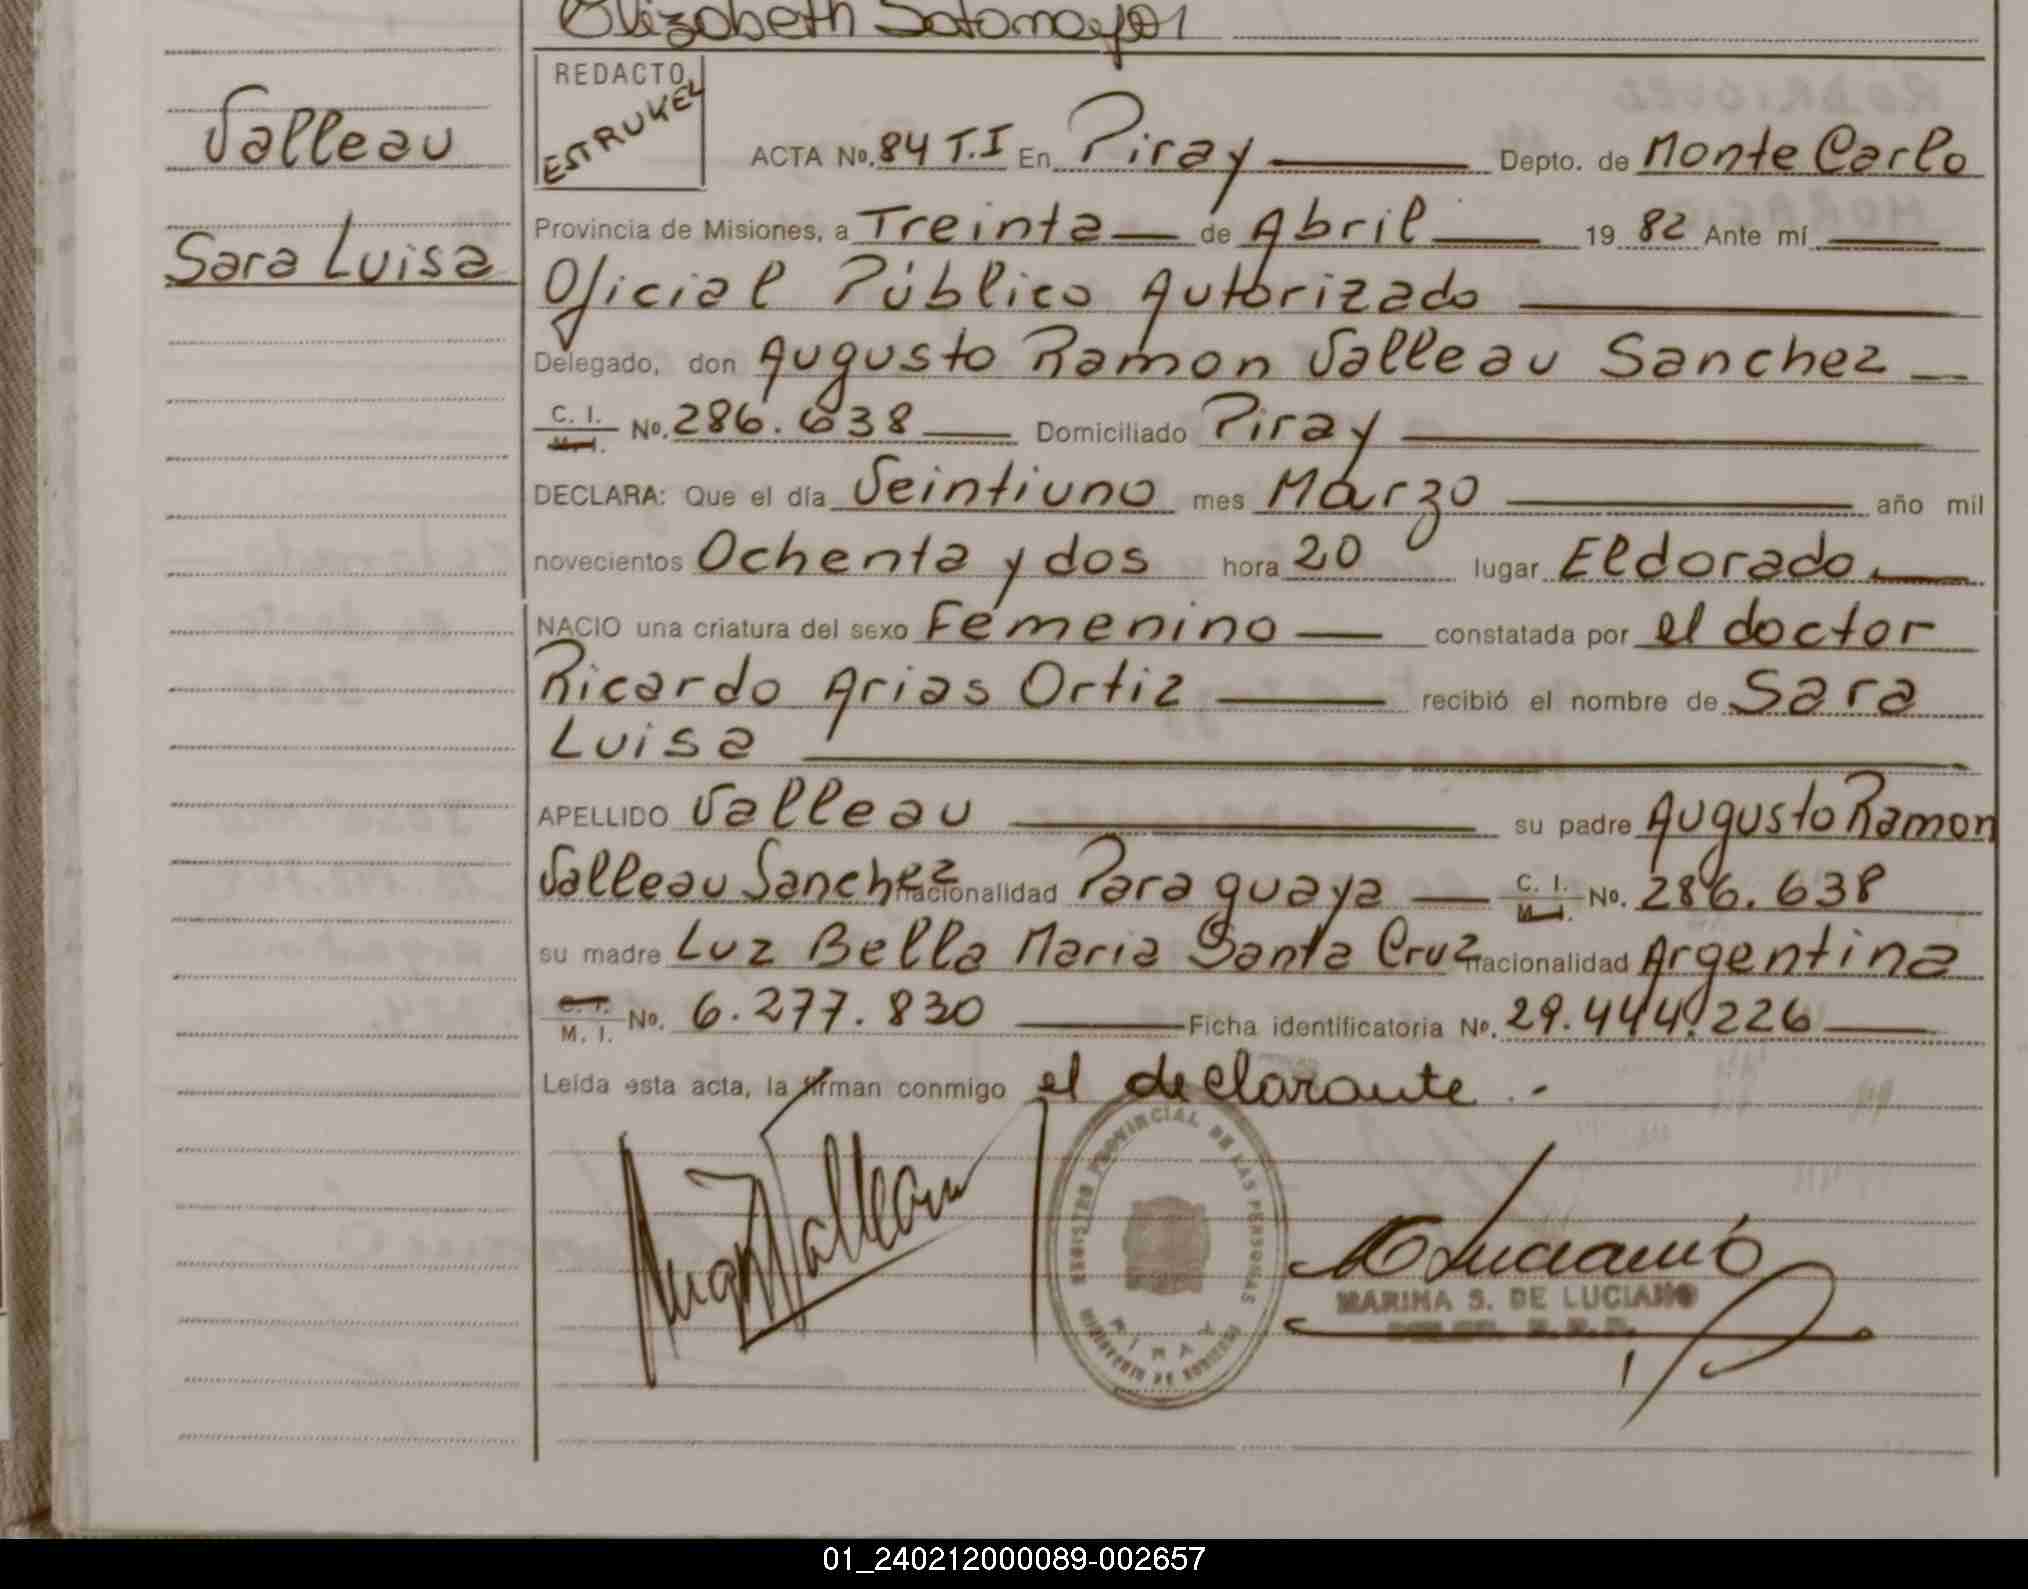 Elizabeth Sotomayor
Valleau
Sara Luisa
REDACTO
ESTRUKEL
ACTA No. 84 T.I En Piray Depto. de Monte Carlo
Provincia de Misiones, a Treinta de Abril 19 82 Ante mí
Oficial Público Autorizado
Delegado, don Augusto Ramon Valleau Sanchez
C. I.
M. I. No. 286.638 Domiciliado Piray
DECLARA: Que el día Veintiuno mes Marzo año mil
novecientos Ochenta y dos hora 20 lugar Eldorado.
NACIO una criatura del sexo Femenino constatada por el doctor
Ricardo Arias Ortiz recibió el nombre de Sara
Luisa
APELLIDO Valleau su padre Augusto Ramon
Valleau Sanchez nacionalidad Paraguaya C. I. M. I. No. 286.638
su madre Luz Bella Maria Santa Cruz nacionalidad Argentina
C. I.
M. I. No. 6.277.830 Ficha identificatoria No. 29.444.226
Leída esta acta, la firman conmigo el declarante.-
REGISTRO PROVINCIAL DE LAS PERSONAS
PIRAY
MINISTERIO DE GOBIERNO
Valleau
M Luciano
MARINA S. DE LUCIANO
01_240212000089-002657